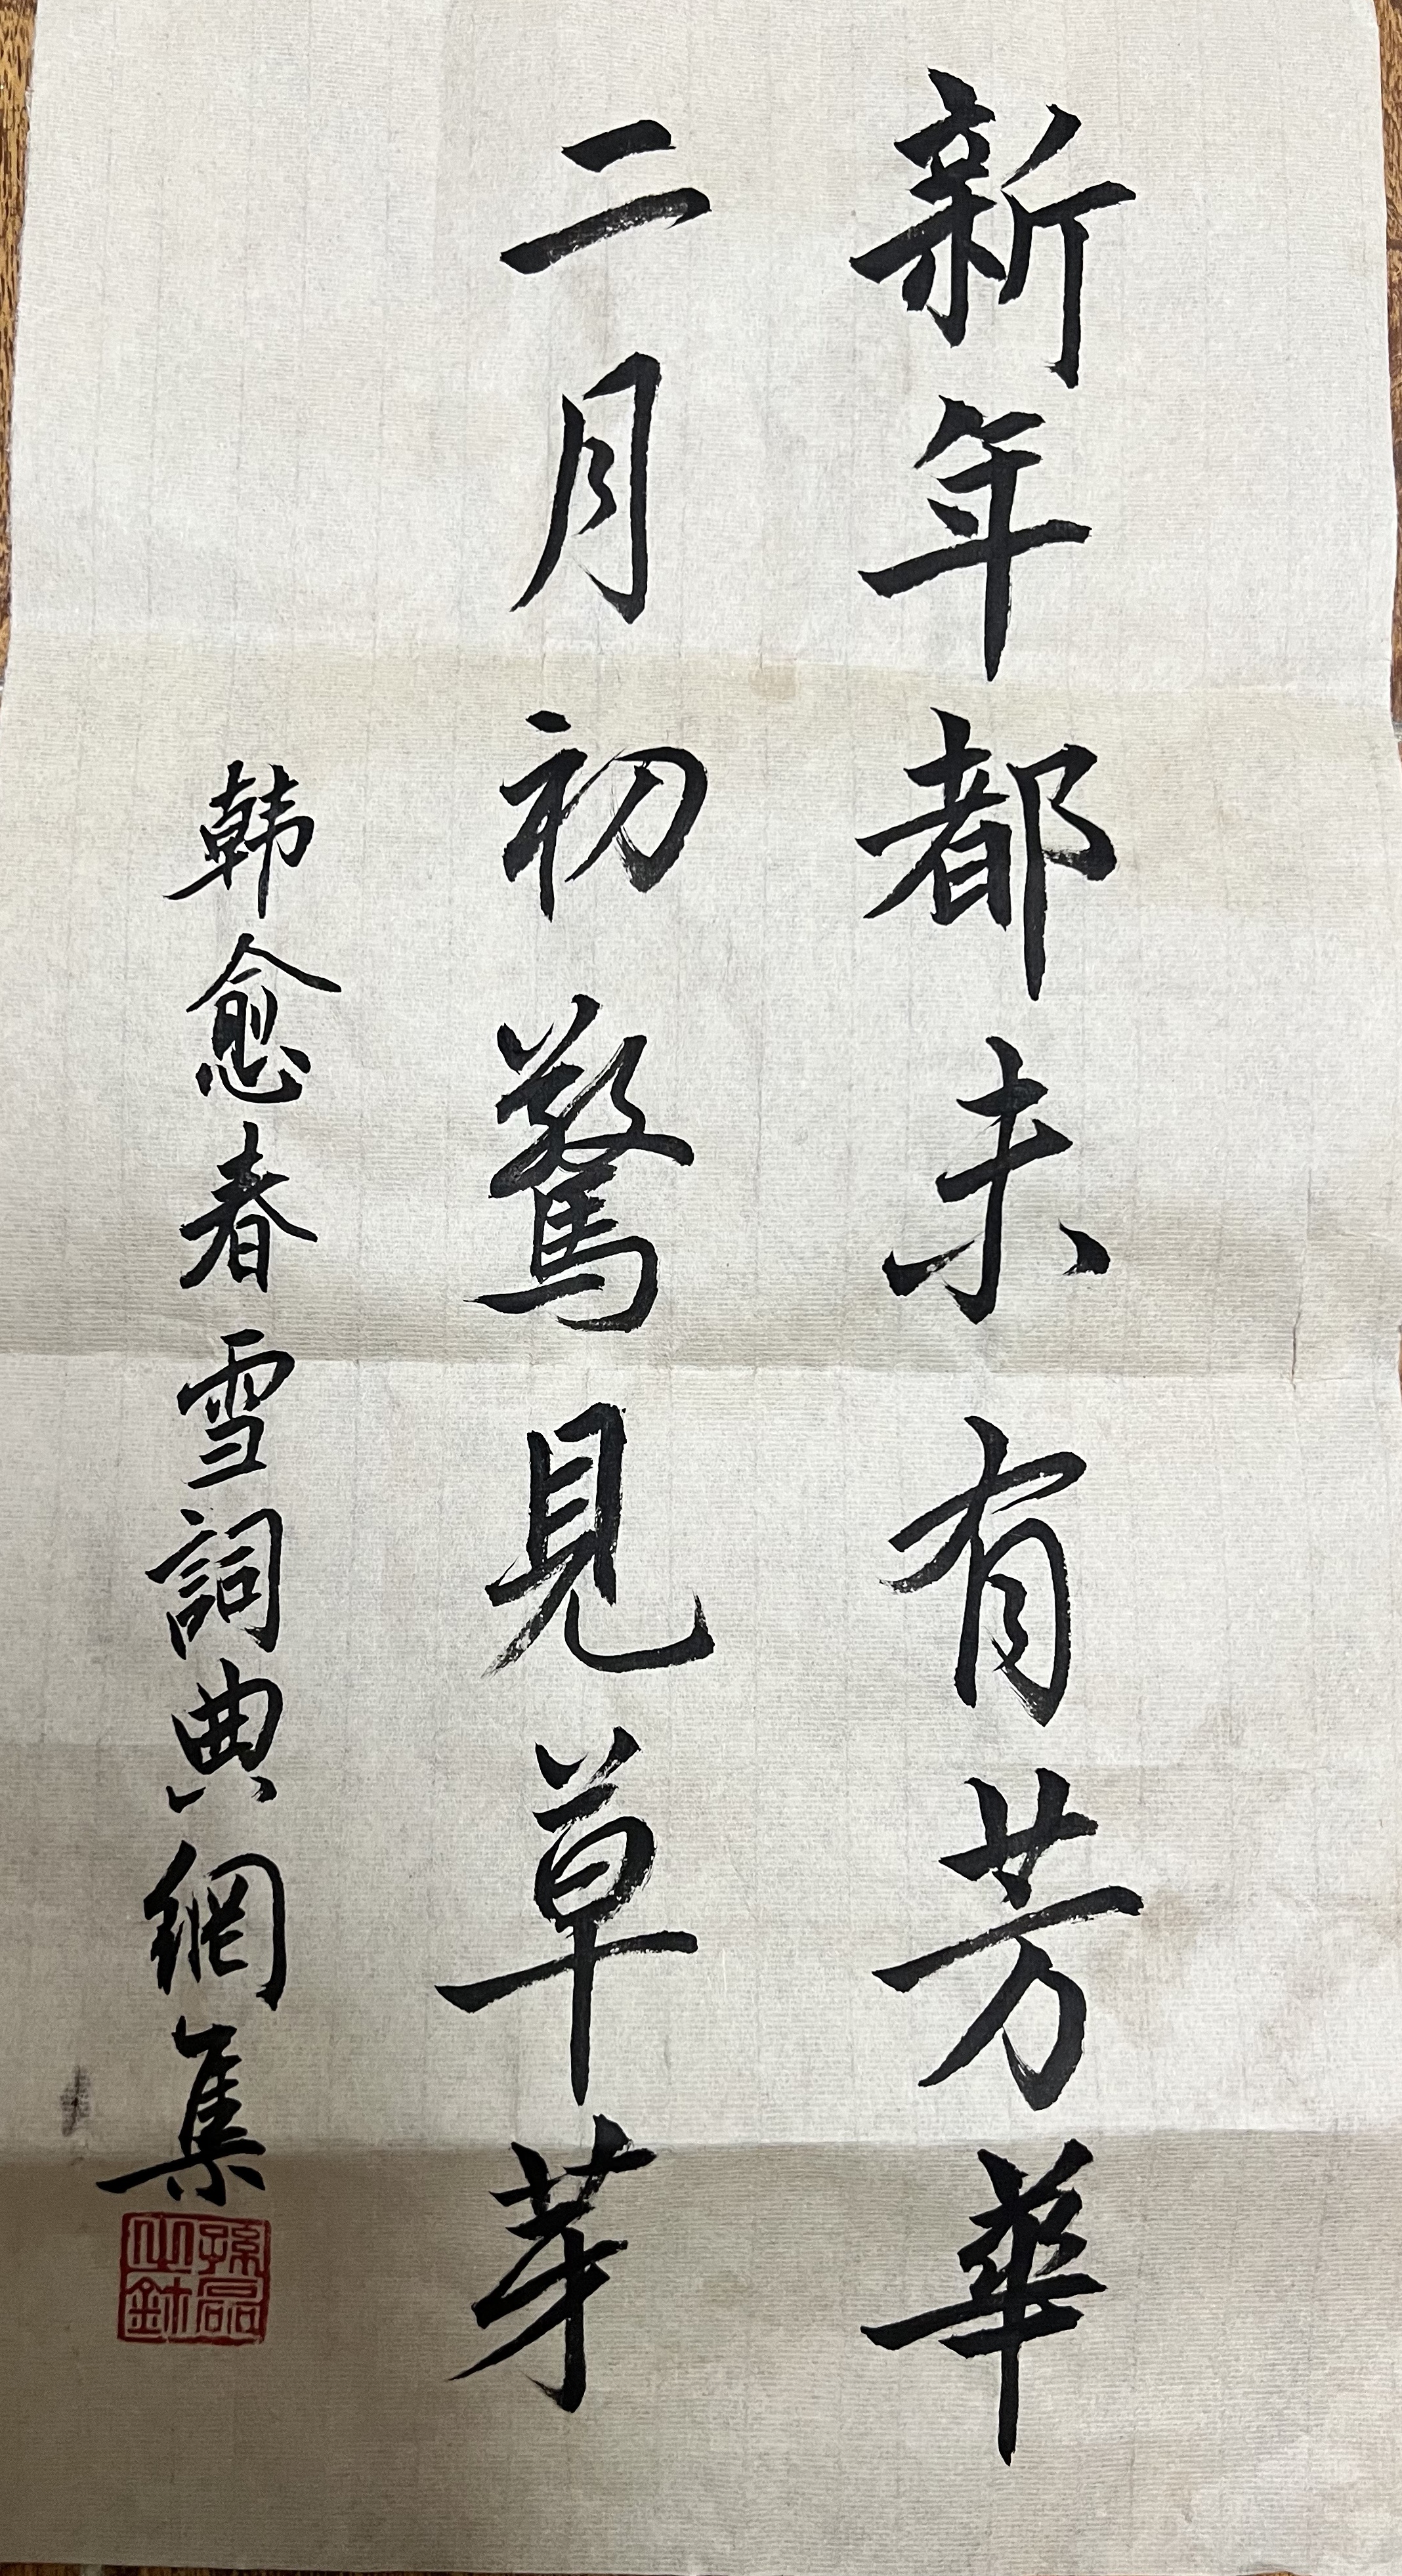 新年都未有芳華
二月初驚見草芽
韩愈春雪詞典網集
孫磊之鉥